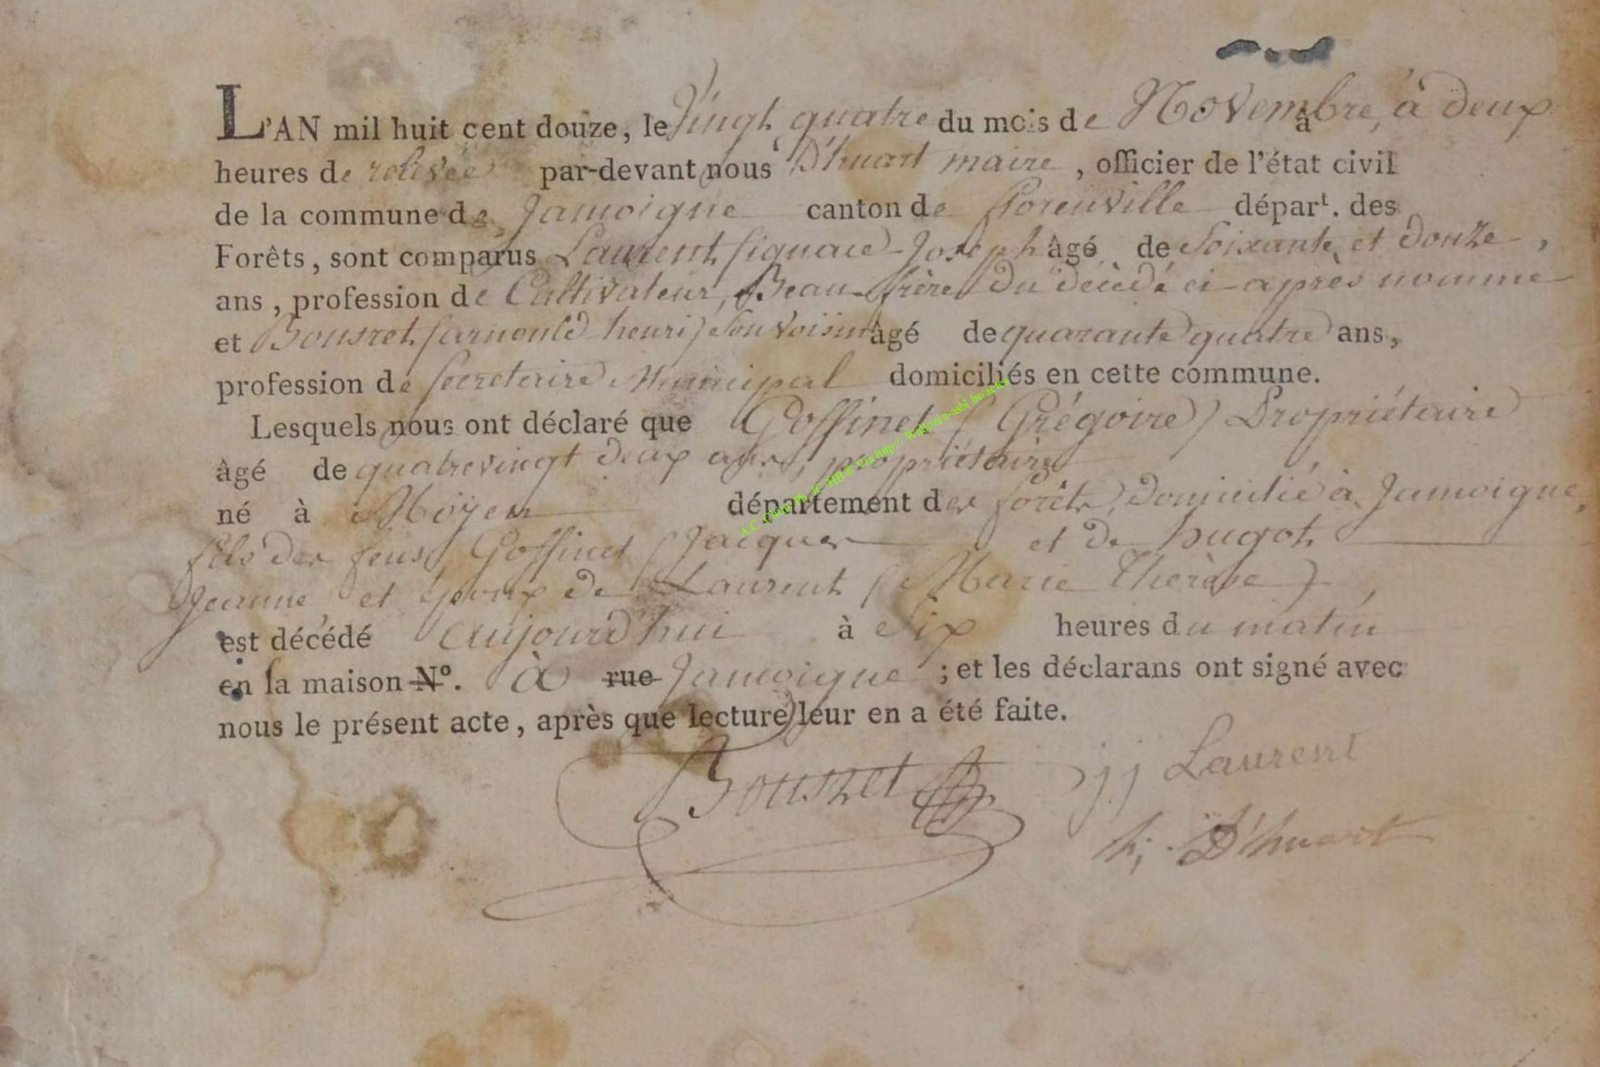 L'AN mil huit cent douze, le Vingt quatre du mois de Novembre, à deux
heures de relevée par-devant nous D'huart maire, officier de l'état civil
de la commune de Jamoigne canton de florenville départ. des
Forêts, sont comparus Laurent (ignace) Joseph âgé de Soixante et douze,
ans, profession de Cultivateur, Beau-frère du décédé ci après nommé
et Bousret (arnould henri) Son Voisin âgé de quarante quatre ans,
profession de Secretaire Municipal domiciliés en cette commune.
Lesquels nous ont déclaré que Goffinet (Grégoire) Propriétaire
âgé de quatrevingt deux ans, propriétaire
né à Moÿen département des forêts, domicilié à Jamoigne,
fils des feus Goffinet (Jacques et de hugot
Jeanne et époux de Laurent (Marie Thérèse)
est décédé aujourd'hui à Six heures du matin
en la maison N°. à rue Jamoigne ; et les déclarans ont signé avec
nous le présent acte, après que lecture leur en a été faite.
Bousret jj Laurent
h; D'huart